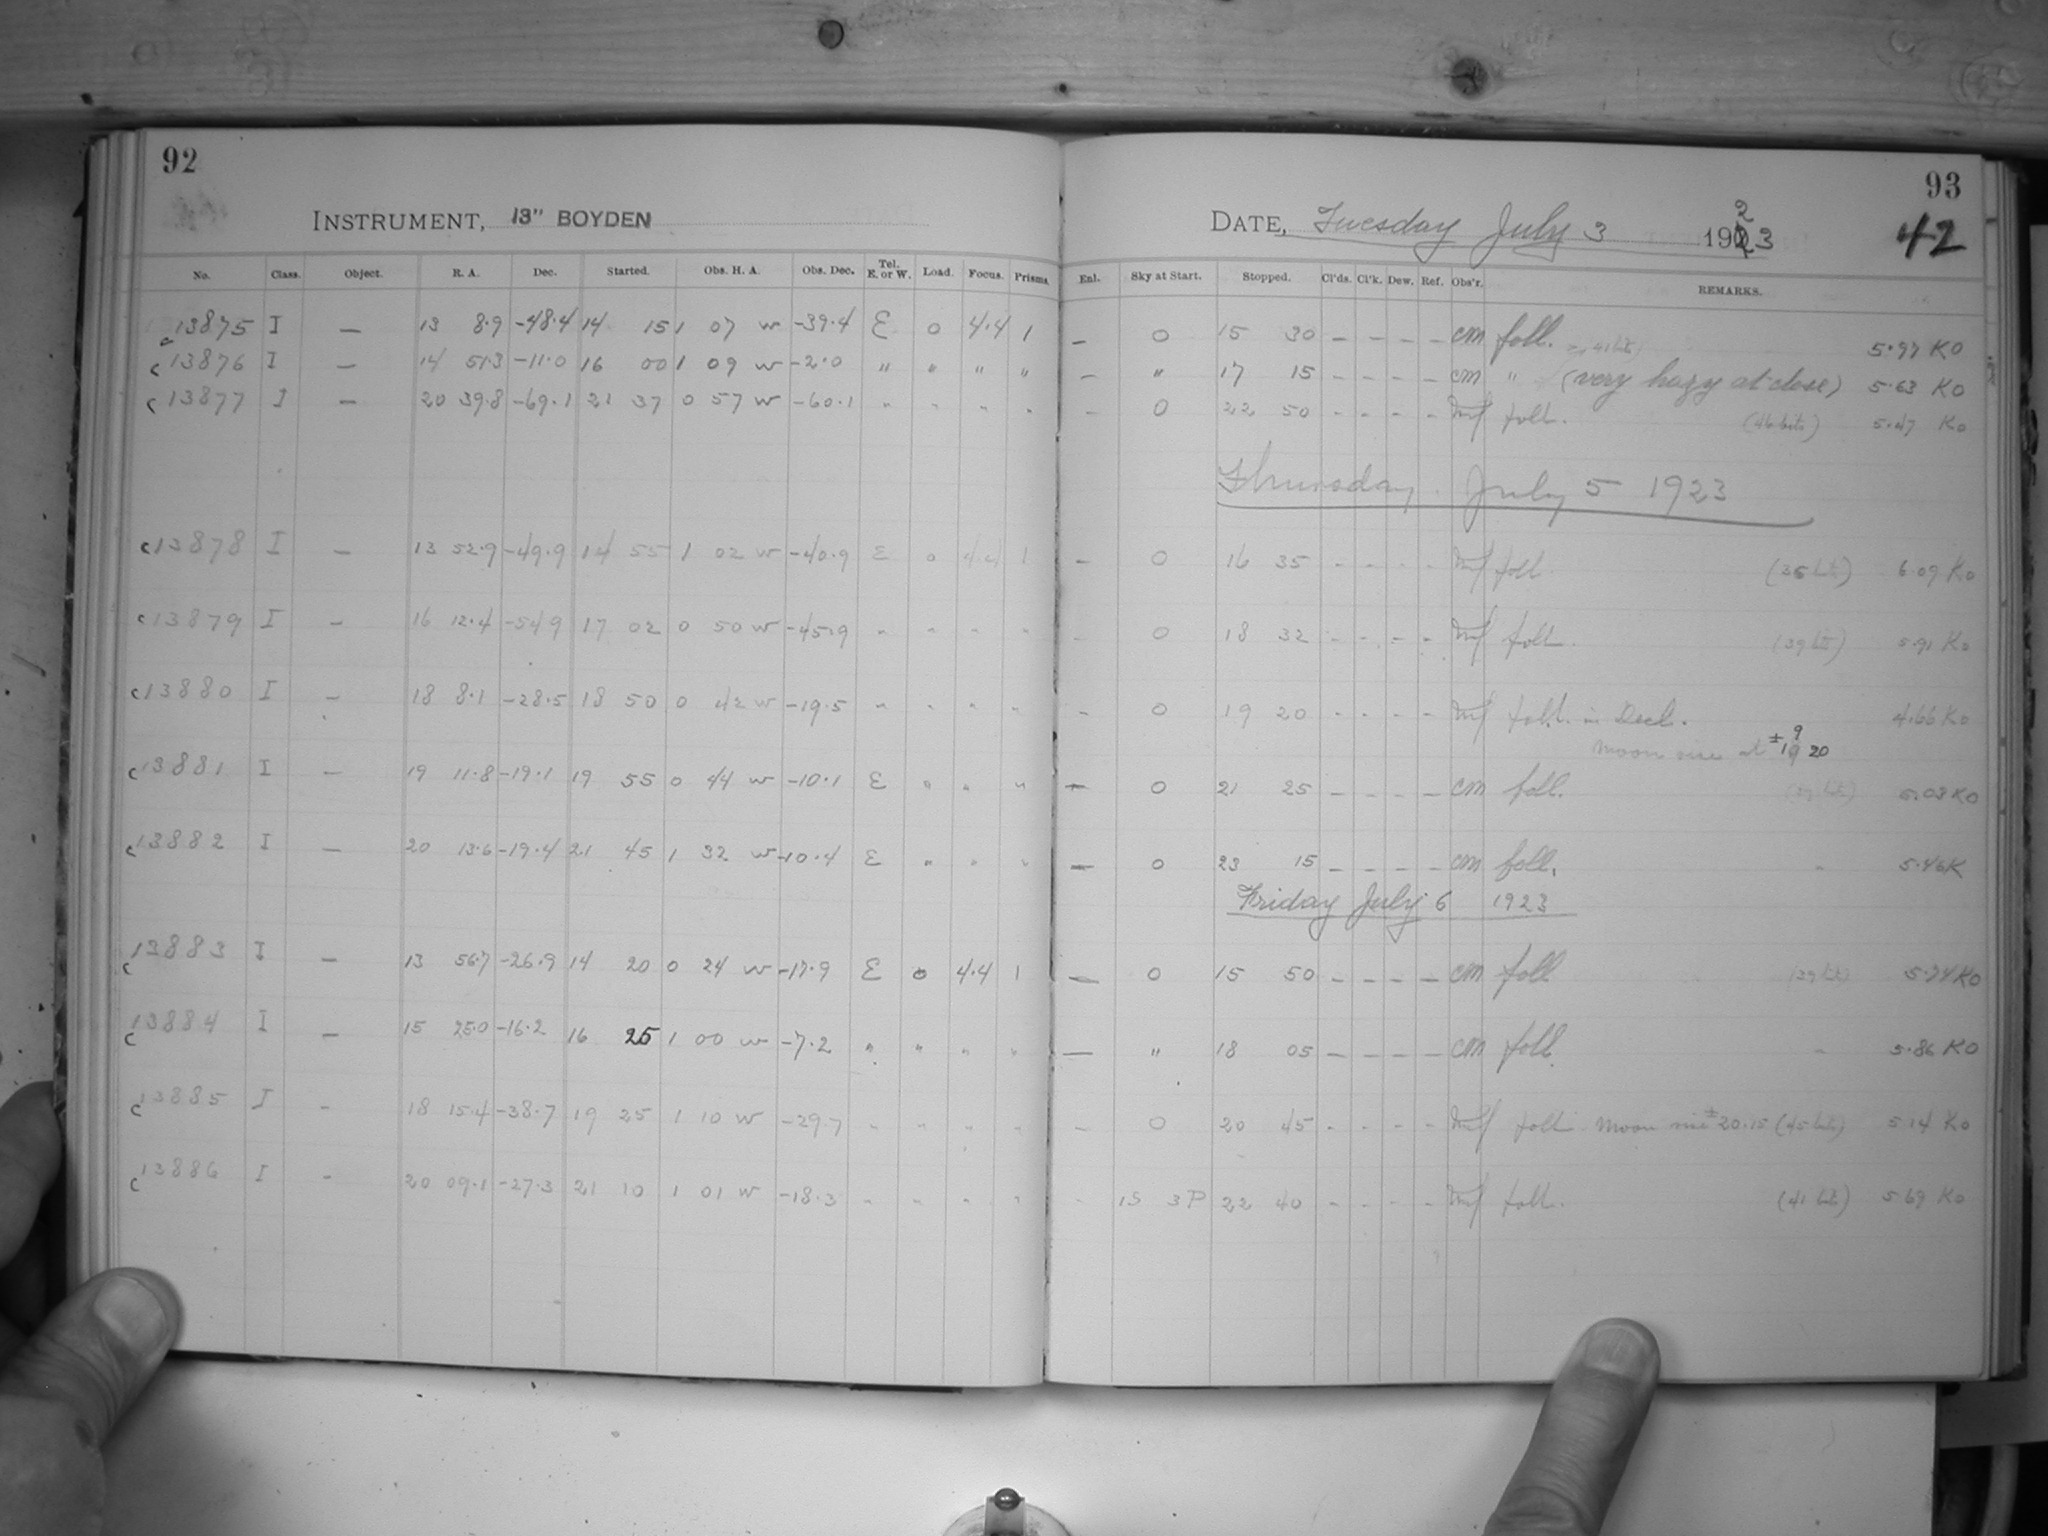 92
INSTRUMENT, 13" BOYDEN
No. Class. Object. R. A. Dec. Started. Obs. H. A. Obs. Dec. Tel. E. or W. Load. Focus. Prisms.
c13875 I — 13 8.9 -48.4 14 15 1 07 W -39.4 E 0 4.4 1
c13876 I — 14 51.3 -11.0 16 00 1 09 W -2.0 " " " "
c13877 I — 20 39.8 -69.1 21 37 0 57 W -60.1 " " " "
c13878 I — 13 52.9 -49.9 14 55 1 02 W -40.9 E 0 4.4 1
c13879 I — 16 12.4 -54.9 17 02 0 50 W -45.9 " " " "
c13880 I — 18 8.1 -28.5 18 50 0 42 W -19.5 " " " "
c13881 I — 19 11.8 -19.1 19 55 0 44 W -10.1 E " " "
c13882 I — 20 13.6 -19.4 21 45 1 32 W -10.4 E " " "
c13883 I — 13 56.7 -26.9 14 20 0 24 W -17.9 E 0 4.4 1
c13884 I — 15 25.0 -16.2 16 25 1 00 W -7.2 " " " "
c13885 I - 18 15.4 -38.7 19 25 1 10 W -29.7 " " " "
c13886 I - 20 09.1 -27.3 21 10 1 01 W -18.3 " " " "
93
DATE, Tuesday July 3 1923
42
Enl. Sky at Start. Stopped. Cl'ds. Cl'k. Dew. Ref. Obs'r. REMARKS.
— 0 15 30 — — — — CM foll. 5.97 KO
— " 17 15 - - - - CM " (very hazy at close) 5.63 KO
- 0 22 50 - - - - foll. (46 bits) 5.47 KO
Thursday July 5 1923
- 0 16 35 - - - - foll. 6.09 KO
0 18 32 - - - - foll. 5.91 KO
- 0 19 20 - - - - foll. in Decl. 4.66 KO
Moon rise at ± 19 20
— 0 21 25 — — — — CM foll. 5.03 KO
— 0 23 15 — — — — CM foll. " 5.46 K
Friday July 6 1923
— 0 15 50 — — — — CM foll
— " 18 05 — — — — CM foll. " 5.86 KO
- 0 20 45 - - - - foll Moon rise ± 20.15 (45 bits) 5.14 KO
- 1S 3P 22 40 - - - - foll. (41 bits) 5.69 KO